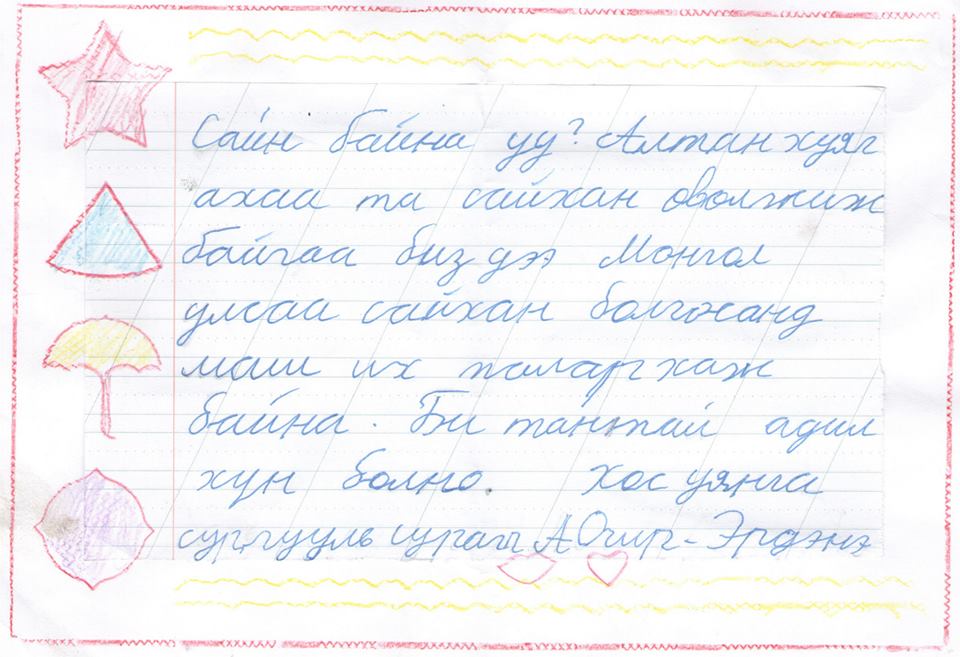 Сайн байна уу? Алтанхуяг
ахаа та сайхан өвөлжиж
байгаа биз дээ Монгол
улсаа сайхан болгосанд
маш их талархаж
байна. Би тантай адил
хүн болно. Хос уянга
сургууль сурагч А Очир-Эрдэнэ